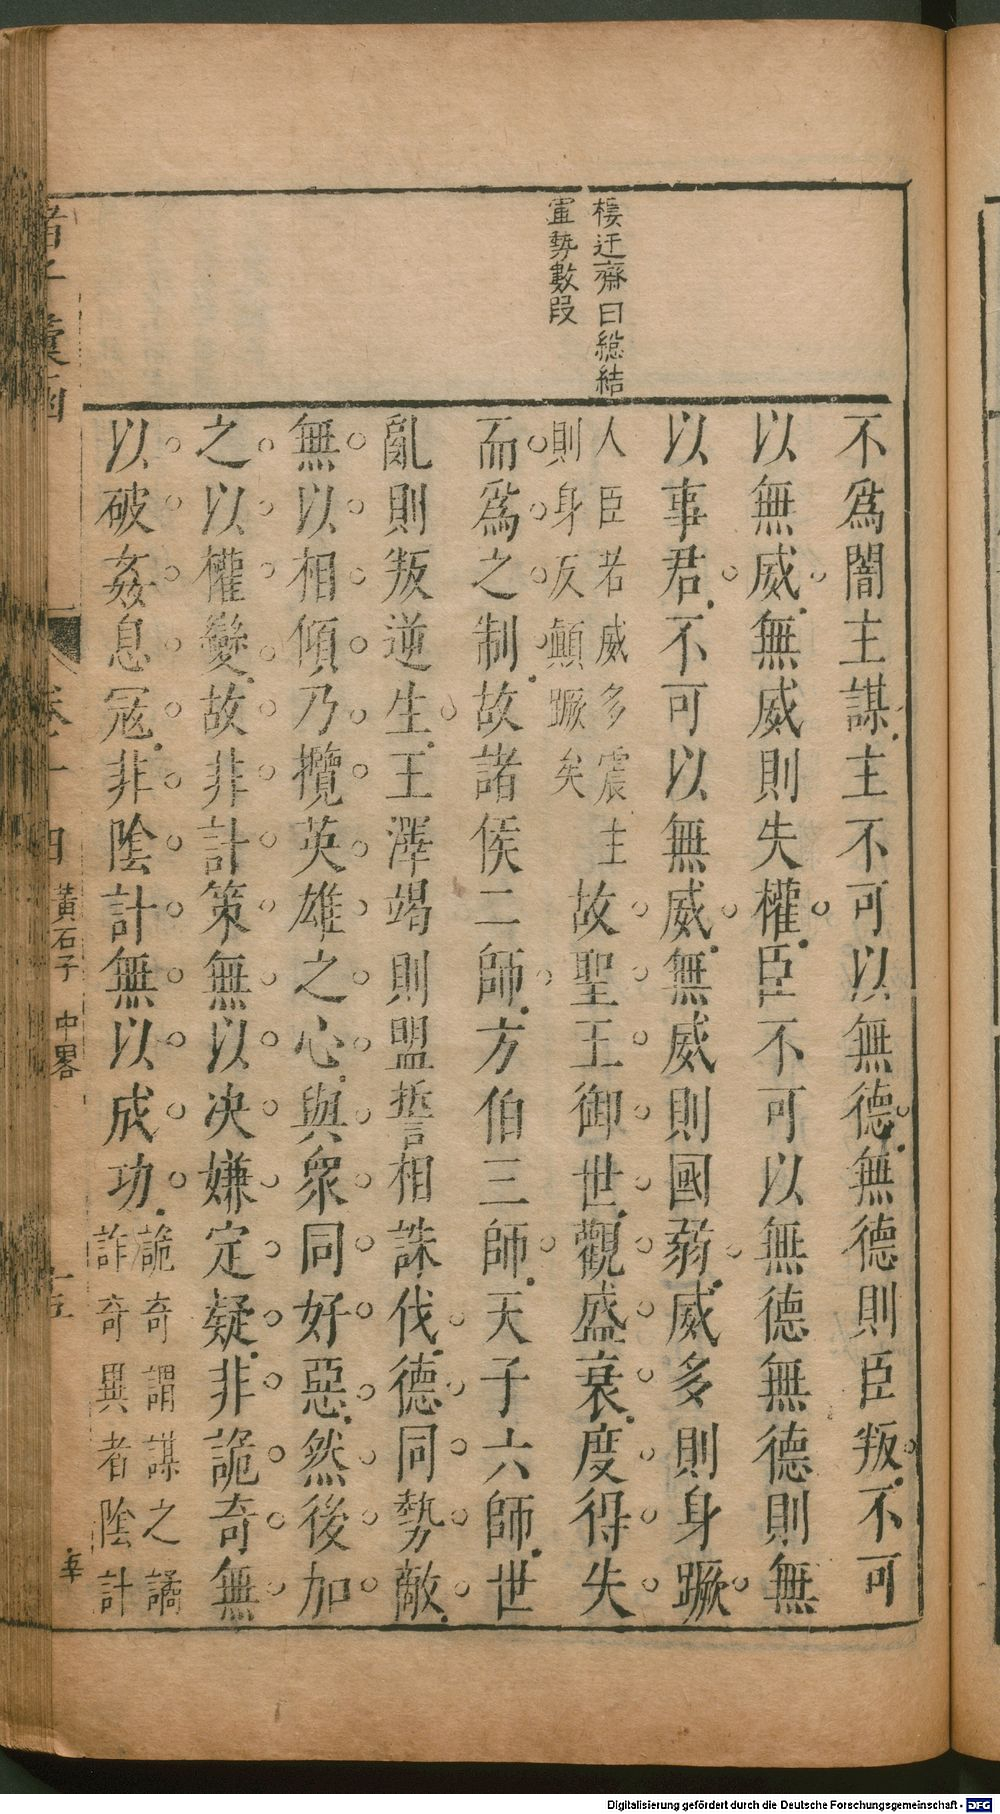 樓迂齋曰總結
軍勢數段
不爲闇主謀主不可以無德無德則臣叛不可
以無威無威則失權臣不可以無德無德則無
以事君不可以無威無威則國弱威多則身蹶
人臣若威多震主
則身反顚蹶矣
故聖王御世觀盛衰度得失
而爲之制故諸侯二師方伯三師天子六師世
亂則叛逆生王澤竭則盟誓相誅伐德同勢敵
無以相傾乃攬英雄之心與衆同好惡然後加
之以權變故非計策無以決嫌定疑非詭奇無
以破姦息寇非陰計無以成功
詭奇謂謀之譎
詐奇異者陰計
諸子彙函
卷十四
黃石子
中畧
十五
Digitalisierung gefördert durch die Deutsche Forschungsgemeinschaft - DFG